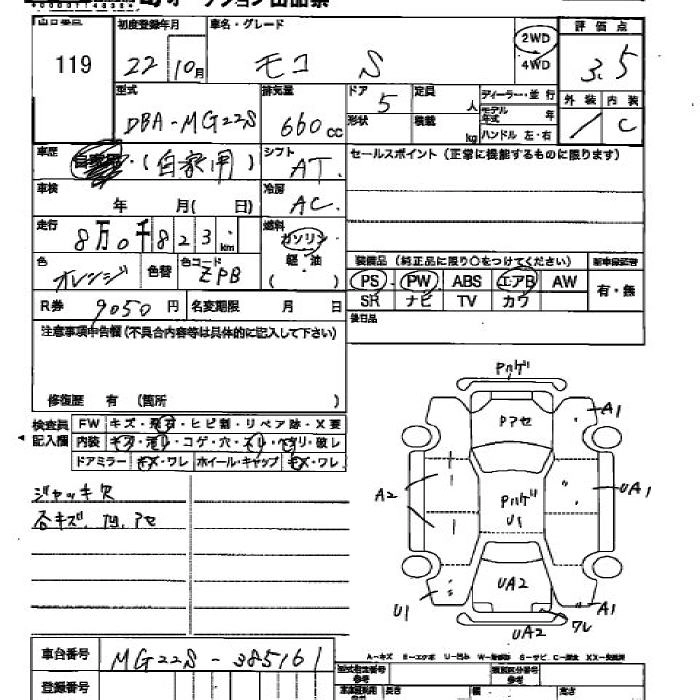 初度登録年月 車名・グレード 評価点
119 22 10月 モコ S 2WD 4WD 3.5
型式 排気量 ドア 定員 ディーラー・並行 外装 内装
DBA-MG22S 660cc 5 人 モデル年式 年 / C
形状 積載 kg ハンドル 左・右
車歴 (自家用) シフト AT セールスポイント(正常に機能するものに限ります)
車検 年 月( 日) 冷房 AC
走行 8万0千823km 燃料 ガソリン 軽油 ( )
色 オレンジ 色替 色コード ZPB
装備品(純正品に限り○をつけてください)
PS PW ABS エアB AW 有・無
SR ナビ TV カワ
R券 9050円 名変期限 月 日
後日品
注意事項申告欄(不具合内容等は具体的に記入して下さい)
修復歴 有 (箇所 )
検査員記入欄 FW キズ・飛石・ヒビ割・リペア跡・X要
内装 キズ・汚レ・コゲ・穴・スレ・ヘリ・破レ
ドアミラー キズ・ワレ ホイール・キャップ キズ・ワレ
ジャッキ欠
各キズ、凹、アセ
Pハゲ
Pアセ A1
A2 Pハゲ U1 UA1
UA2
U1 A1
UA2 ワレ
車台番号 MG22S-385161
登録番号
型式指定番号 類別区分番号
長さ 幅 高さ